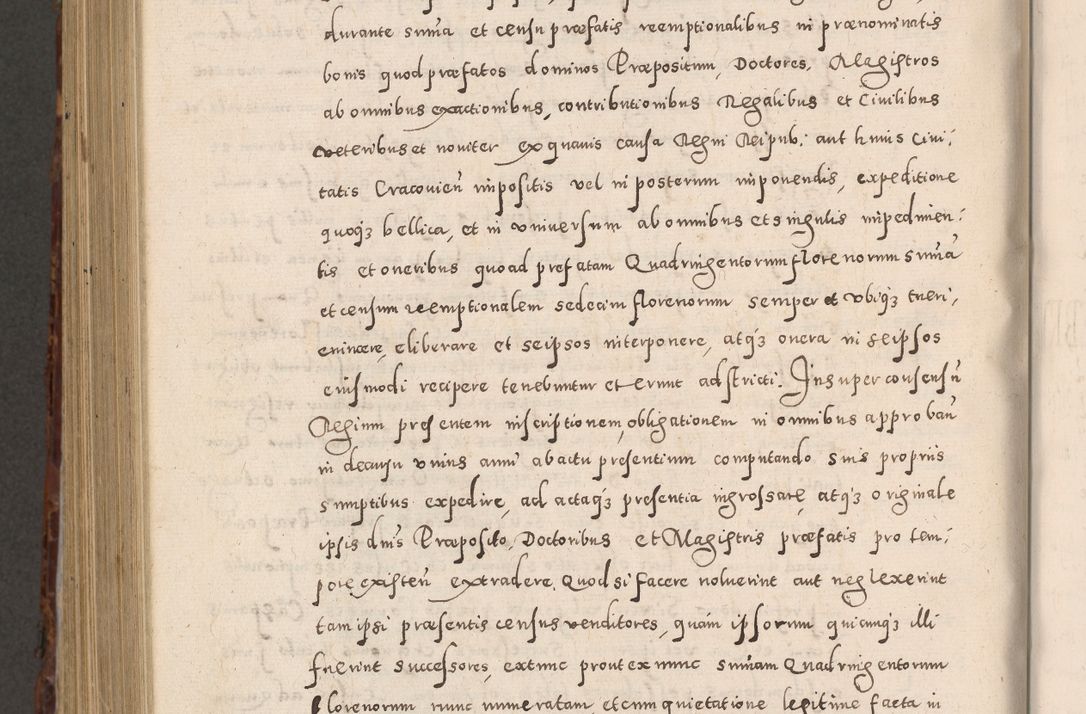 durante sum̃a et censu præfatis reemptionalibus in prænominatis
bonis quod præfatos dominos Præpositum, Doctores, Magistros
ab omnibus exactionibus, contributionibus Regalibus et Civilibus
veteribus et noviter ex quavis causa Regni Reipub: aut huius Civi:
tatis Cracovien̄ impositis vel in posterum imponendis, expeditione
quoq₃ bellica, et in universum ab omnibus et singulis impedimen:
tis et oneribus quoad prefatam Quadringentorum florenorum sum̃a
et censum reemptionalem sedecim florenorum semper et ubiq₃ tueri,
evincere, eliberare et seipsos interponere, atq₃ onera in seipsos
eiusmodi recipere tenebuntur et erunt adstricti. Insuper consensū
Regium presentem inscriptionem, obligationem in omnibus approbań
in decursu unius anni ab actu presentium computando suis propriis
sumptibus expedire, ad actaq₃ presentia ingrossare, atq₃ originale
ipsis dn̄is Præposito, Doctoribus et Magistris præfatis pro tem:
pore existeń extradere. Quod si facere noluerint aut neglexerint
tam ipsi præsentis census venditores, quam ipsorum quicunq₃ illi
fuerint successores, extunc prout ex nunc sum̄am Quadringentorum
florenorum nunc numeratam, et cum quietatione legitime facta in